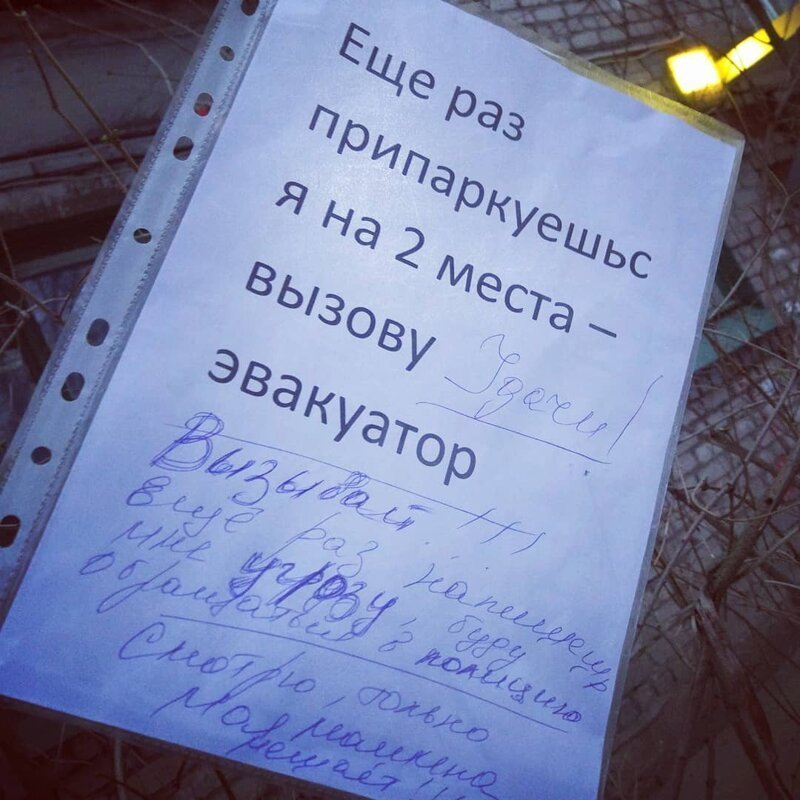 Еще раз
припаркуешьс
я на 2 места –
вызову Удачи!
эвакуатор
Вызывай!!!
Еще раз напишешь
мне угрозу, буду
обращаться в полицию
Смотрю, только
моя машина
мешает!!!